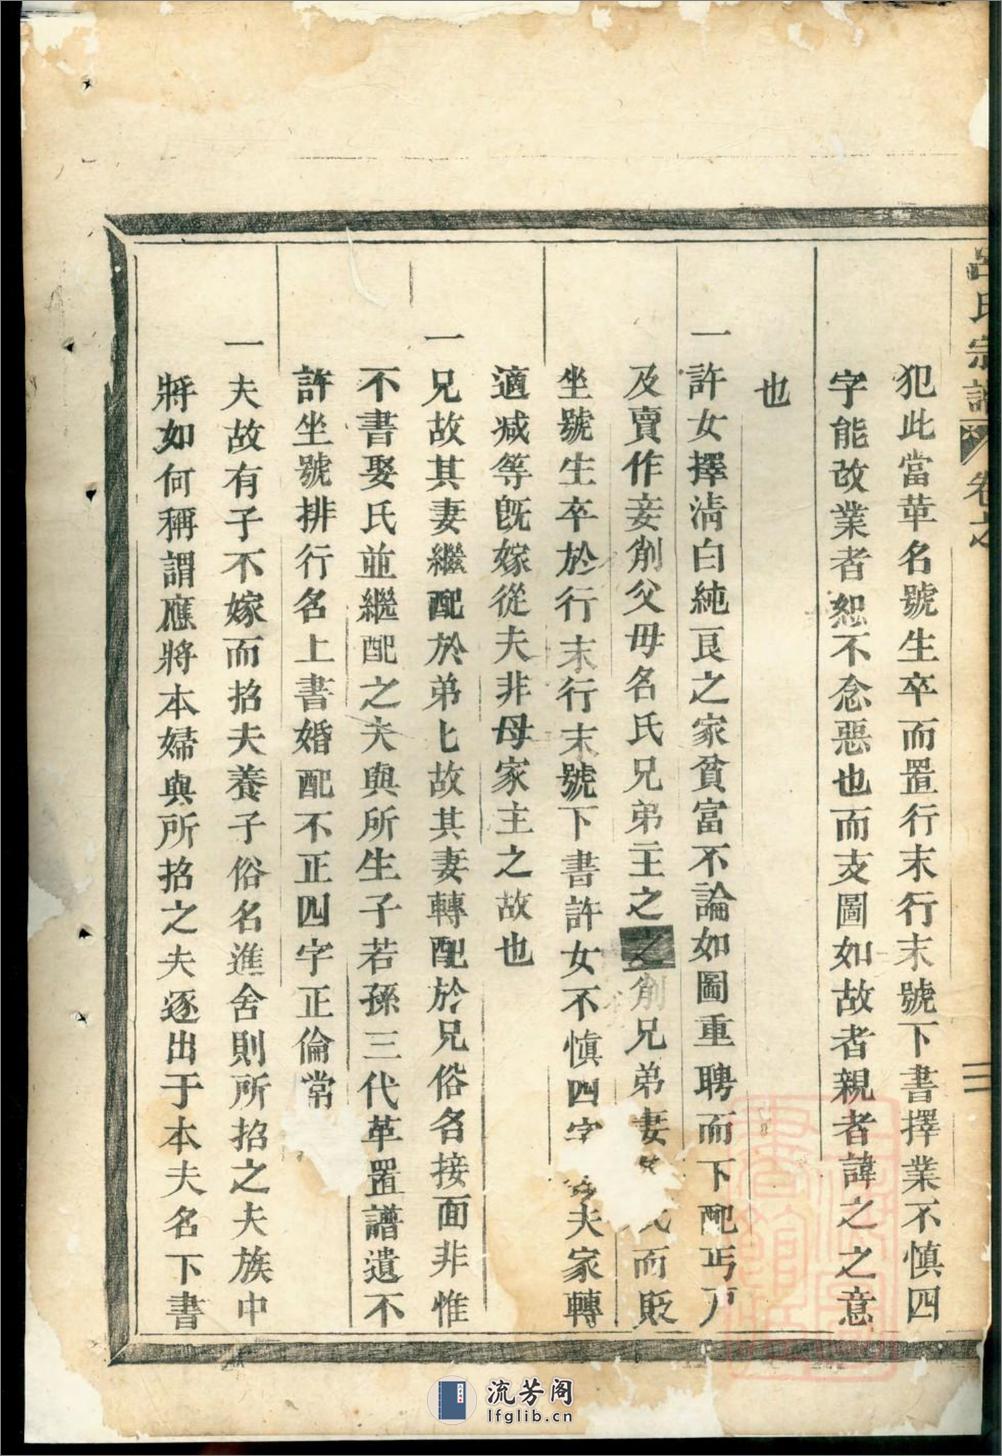 呂氏宗譜 卷之
犯此當革名號生卒而置行末行末號下書擇業不慎四
字能改業者恕不念惡也而支圖如故者親者諱之之意
也
一許女擇清白純良之家貧富不論如圖重聘而下配丐戶
及賣作妾削父母名氏兄弟主之削兄弟妻氏而貶
坐號生卒於行末行末號下書許女不慎四字夫家轉
適减等旣嫁從夫非母家主之故也
一兄故其妻繼配於弟七故其妻轉配於兄俗名接面非惟
不書娶氏並繼配之夫與所生子若孫三代革置譜遺不
許坐號排行名上書婚配不正四字正倫常
一夫故有子不嫁而招夫養子俗名進舍則所招之夫族中
將如何稱謂應將本婦與所招之夫逐出于本夫名下書
流芳阁
lfglib.cn